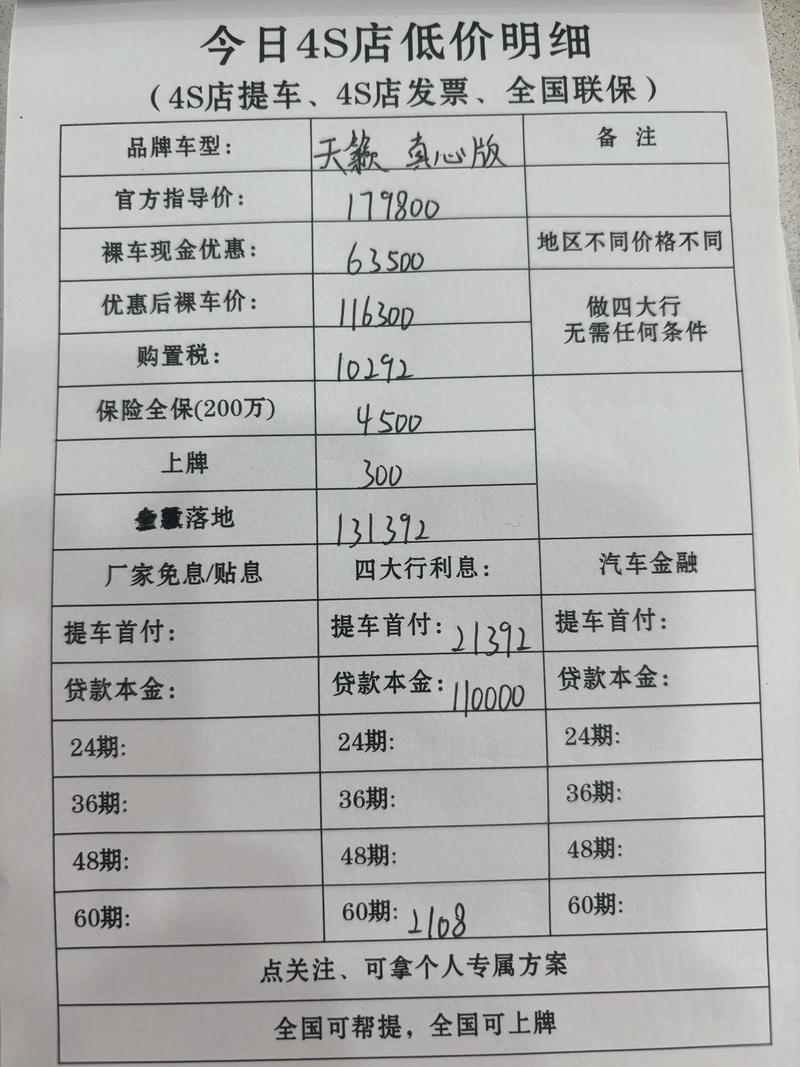 今日4S店低价明细
(4S店提车、4S店发票、全国联保)
品牌车型: 天籁 真心版 备 注
官方指导价: 179800
裸车现金优惠: 63500 地区不同价格不同
优惠后裸车价: 116300 做四大行
无需任何条件
购置税: 10292
保险全保(200万) 4500
上牌 300
落地 131392
厂家免息/贴息 四大行利息: 汽车金融
提车首付: 提车首付: 21392 提车首付:
贷款本金: 贷款本金: 110000 贷款本金:
24期: 24期: 24期:
36期: 36期: 36期:
48期: 48期: 48期:
60期: 60期: 2108 60期:
点关注、可拿个人专属方案
全国可帮提，全国可上牌